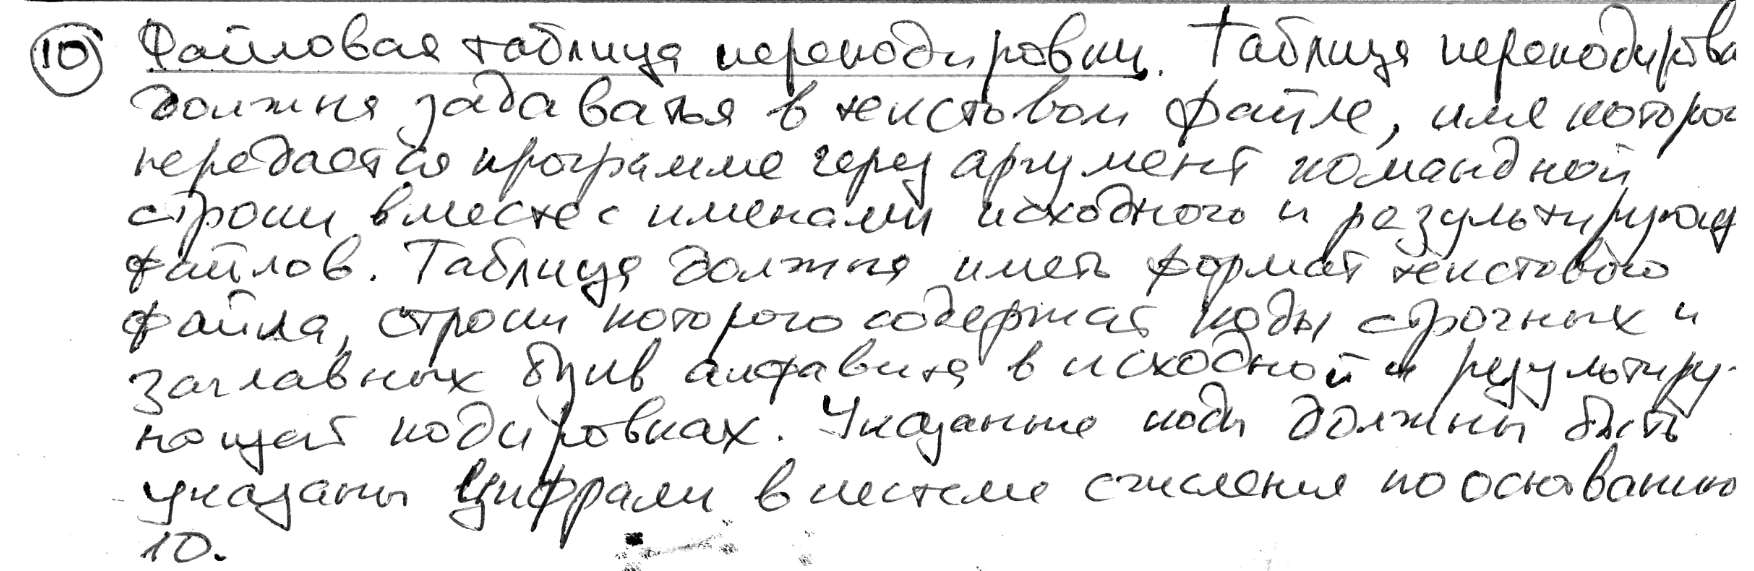 10 Файловая таблица перекодировки. Таблица перекодировки
должна задаваться в текстовом файле, имя которого
передается программе через аргумент командной
строки вместе с именами исходного и результирующ
файлов. Таблица должна иметь формат текстового
файла, строки которого содержат коды строчных и
заглавных букв алфавита в исходной и результиру-
ющей кодировках. Указанные коды должны быть
указаны цифрами в системе счисления по основанию
10.